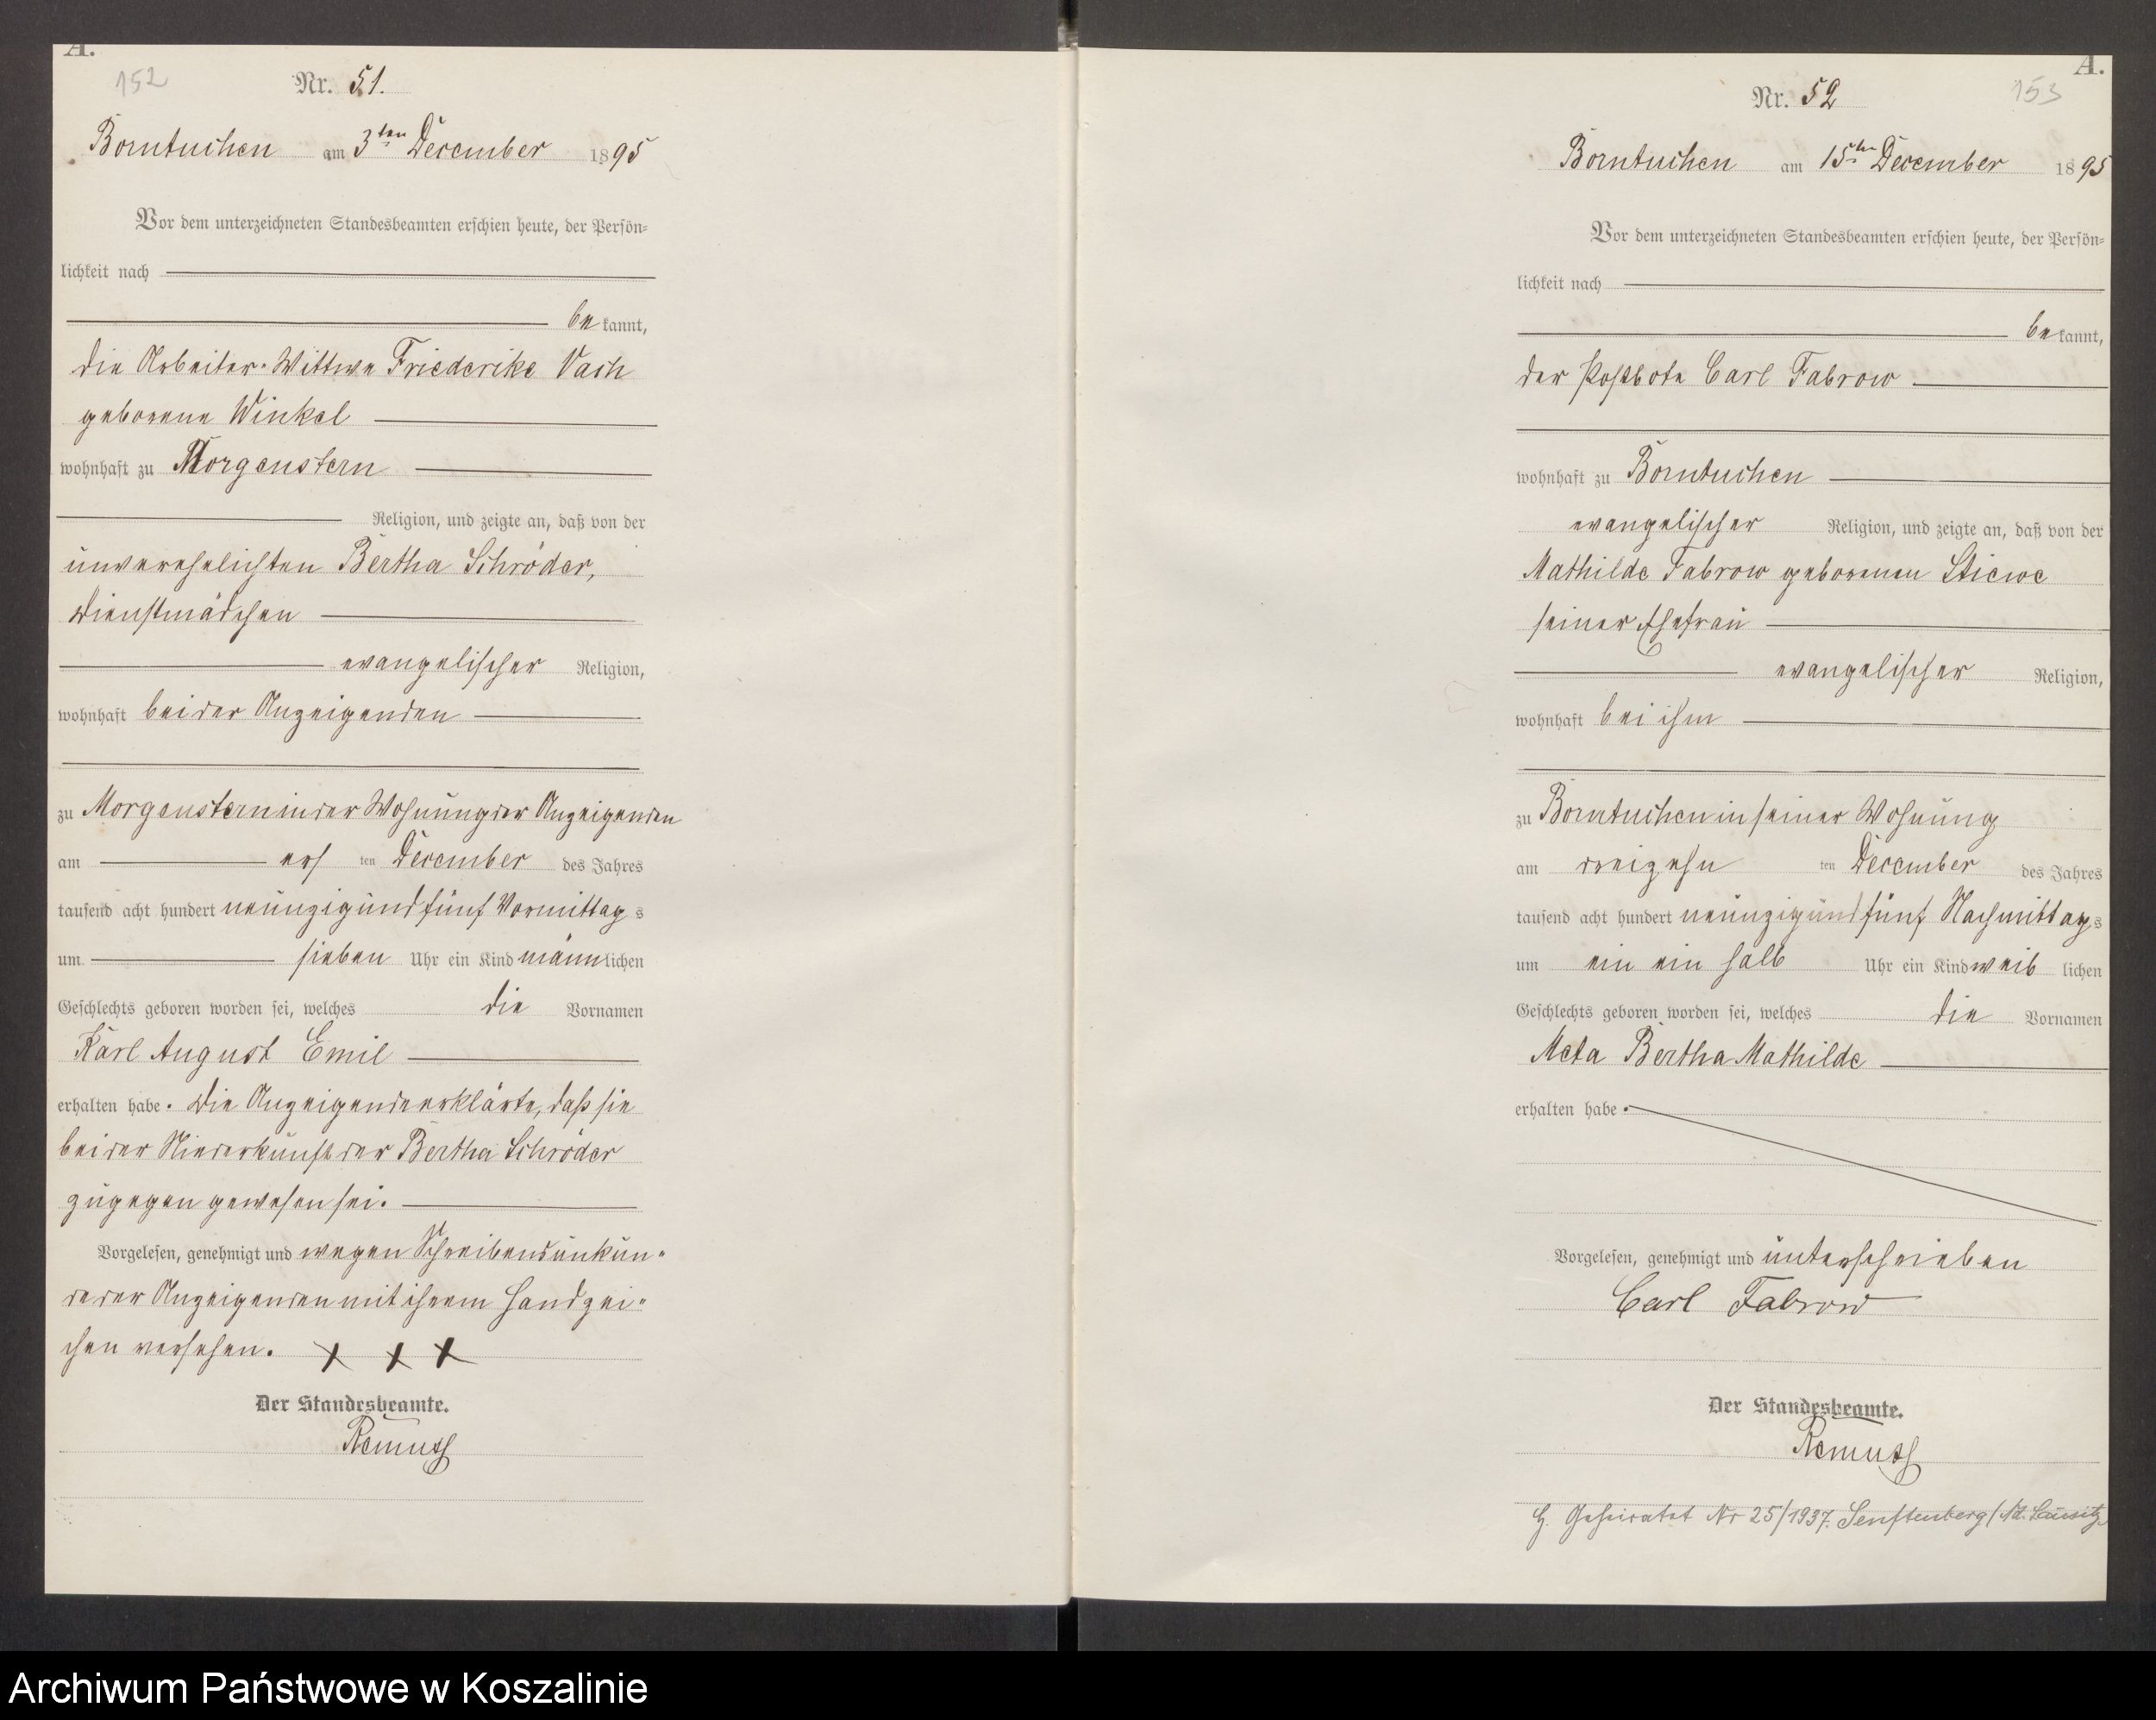 A.
152
Nr. 51.
Borntuchen am 3ten December 1895
Vor dem unterzeichneten Standesbeamten erschien heute, der Persön-
lichkeit nach
bekannt,
die Arbeiter-Wittwe Friederike Vach
geborene Winkel
wohnhaft zu Morgenstern
Religion, und zeigte an, daß von der
unverehelichten Bertha Schröder,
Dienstmädchen
evangelischer Religion,
wohnhaft bei der Anzeigenden
zu Morgenstern in der Wohnung der Anzeigenden
am ersten December des Jahres
tausend acht hundert neunzig und fünf Vormittags
um sieben Uhr ein Kind männlichen
Geschlechts geboren worden sei, welches die Vornamen
Karl August Emil
erhalten habe. Die Anzeigende erklärte, daß sie
bei der Niederkunft der Bertha Schröder
zugegen gewesen sei.
Vorgelesen, genehmigt und wegen Schreibensunkun-
de der Anzeigenden mit ihrem Handzei-
chen versehen. x x x
Der Standesbeamte.
Remuss
A.
153
Nr. 52
Borntuchen am 15ten December 1895
Vor dem unterzeichneten Standesbeamten erschien heute, der Persön-
lichkeit nach
bekannt,
der Postbote Carl Fabrow
wohnhaft zu Borntuchen
evangelischer Religion, und zeigte an, daß von der
Mathilde Fabrow geborenen Stiewe
seiner Ehefrau
evangelischer Religion,
wohnhaft bei ihm
zu Borntuchen in seiner Wohnung
am dreizehnten December des Jahres
tausend acht hundert neunzig und fünf Nachmittags
um ein ein halb Uhr ein Kind weiblichen
Geschlechts geboren worden sei, welches die Vornamen
Meta Bertha Mathilde
erhalten habe.
Vorgelesen, genehmigt und unterschrieben
Carl Fabrow
Der Standesbeamte.
Remuss
Geheiratet Nr 25/1937. Senftenberg/Nd. Lausitz
Archiwum Państwowe w Koszalinie